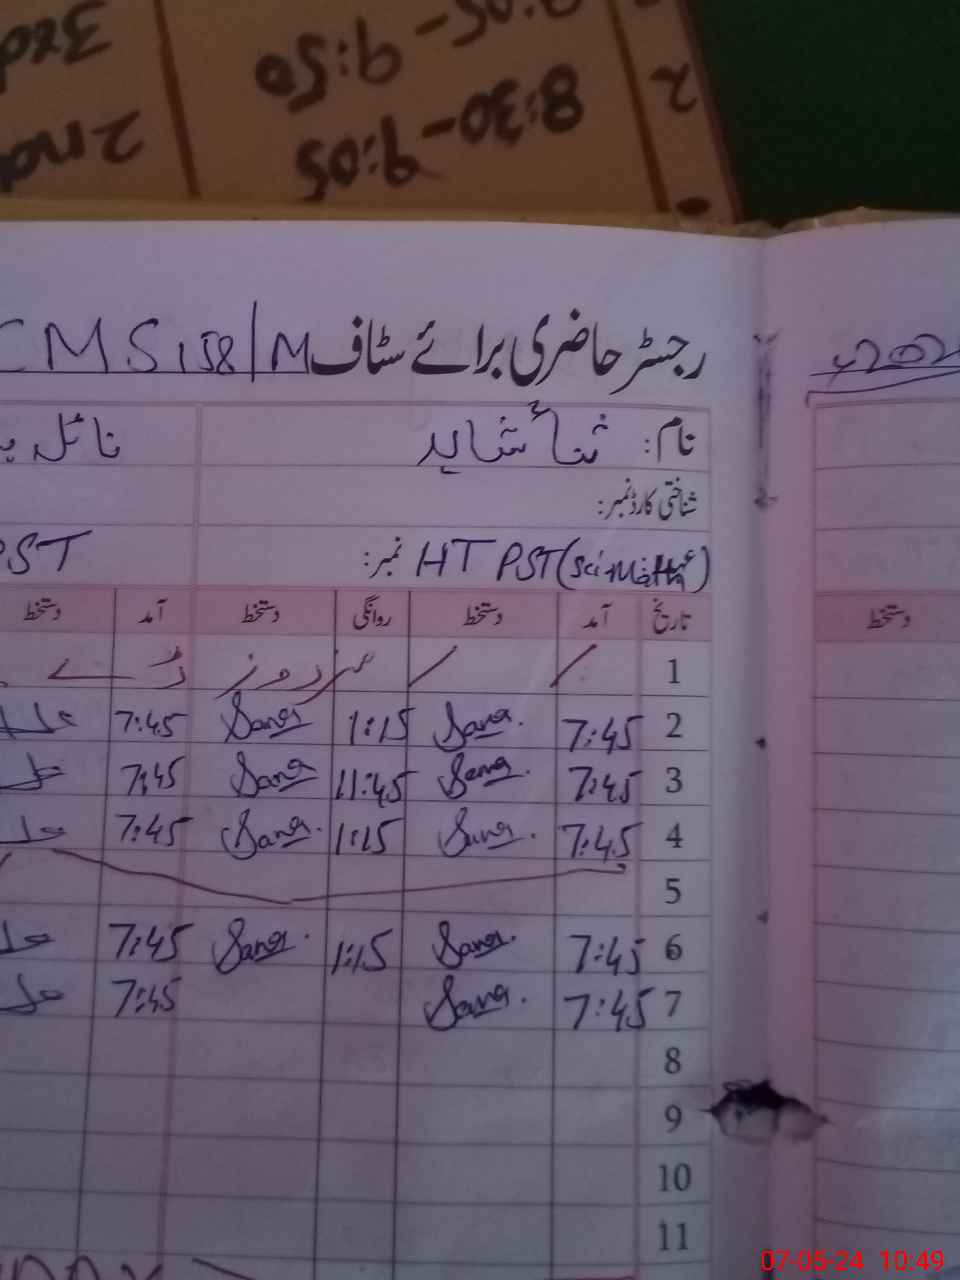 9:05-9:50
3rd
8:30-9:05
2nd
2
رجسٹر حاضری برائے سٹاف CMS 158/M
نام: ثنا شاہد
نائلہ
شناختی کارڈ نمبر:
نمبر: HT PST (Sci-Math)
PST
تاریخ آمد دستخط روانگی دستخط آمد دستخط
دستخط
1 / /
2 7:45 Sana. 1:15 Sana 7:45
3 7:45 Sana. 11:45 Sana 7:45
4 7:45 Sana. 1:15 Sana. 7:45
5
6 7:45 Sana. 1:15 Sana. 7:45
7 7:45 Sana. 7:45
8
9
10
11
07-05-24 10:49